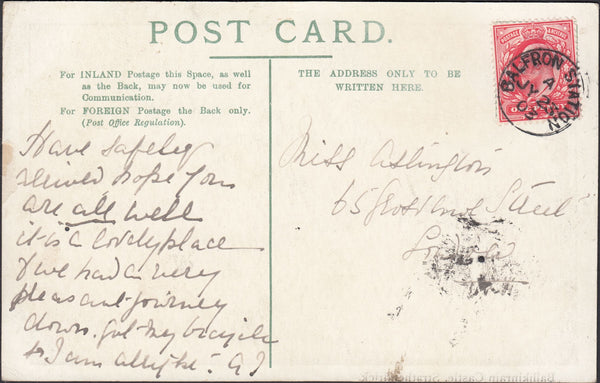 POST CARD.
For INLAND Postage this Space, as well
as the Back, may now be used for
Communication.
For FOREIGN Postage the Back only.
(Post Office Regulation).
THE ADDRESS ONLY TO BE
WRITTEN HERE.
BALFRON STATION
A
JY 22
POSTAGE
Have safely
arrived hope you
are all well
it is a lovely place
& we had a very
pleasant journey
down. got my bicycle
so I am allright.
Miss
65 Grosvenor Street
London
Ballikinrain Castle, Strathendrick